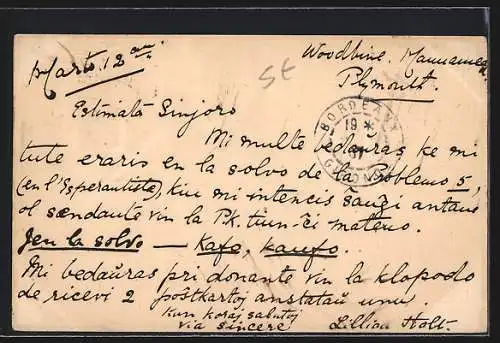 Marto 12an
st
Woodbine, Mannamead.
Plymouth.
Estimata Sinjoro
BORDEAUX
19
07
GIRONDE
Mi multe bedauras ke mi
tute eraris en la solvo de la Problemo 5,
(en l'Esperantisto), kiu mi intencis ŝanĝi antaŭ
ol sændante vin la P.k. tiun-ĉi mateno.
Jen la solvo — Kafo, kaufo.
Mi bedaŭras pri donante vin la klopodo
de ricevi 2 poŝtkartoj anstataŭ unu.
kun koraj salutoj
via sincere
Lillian Holt.